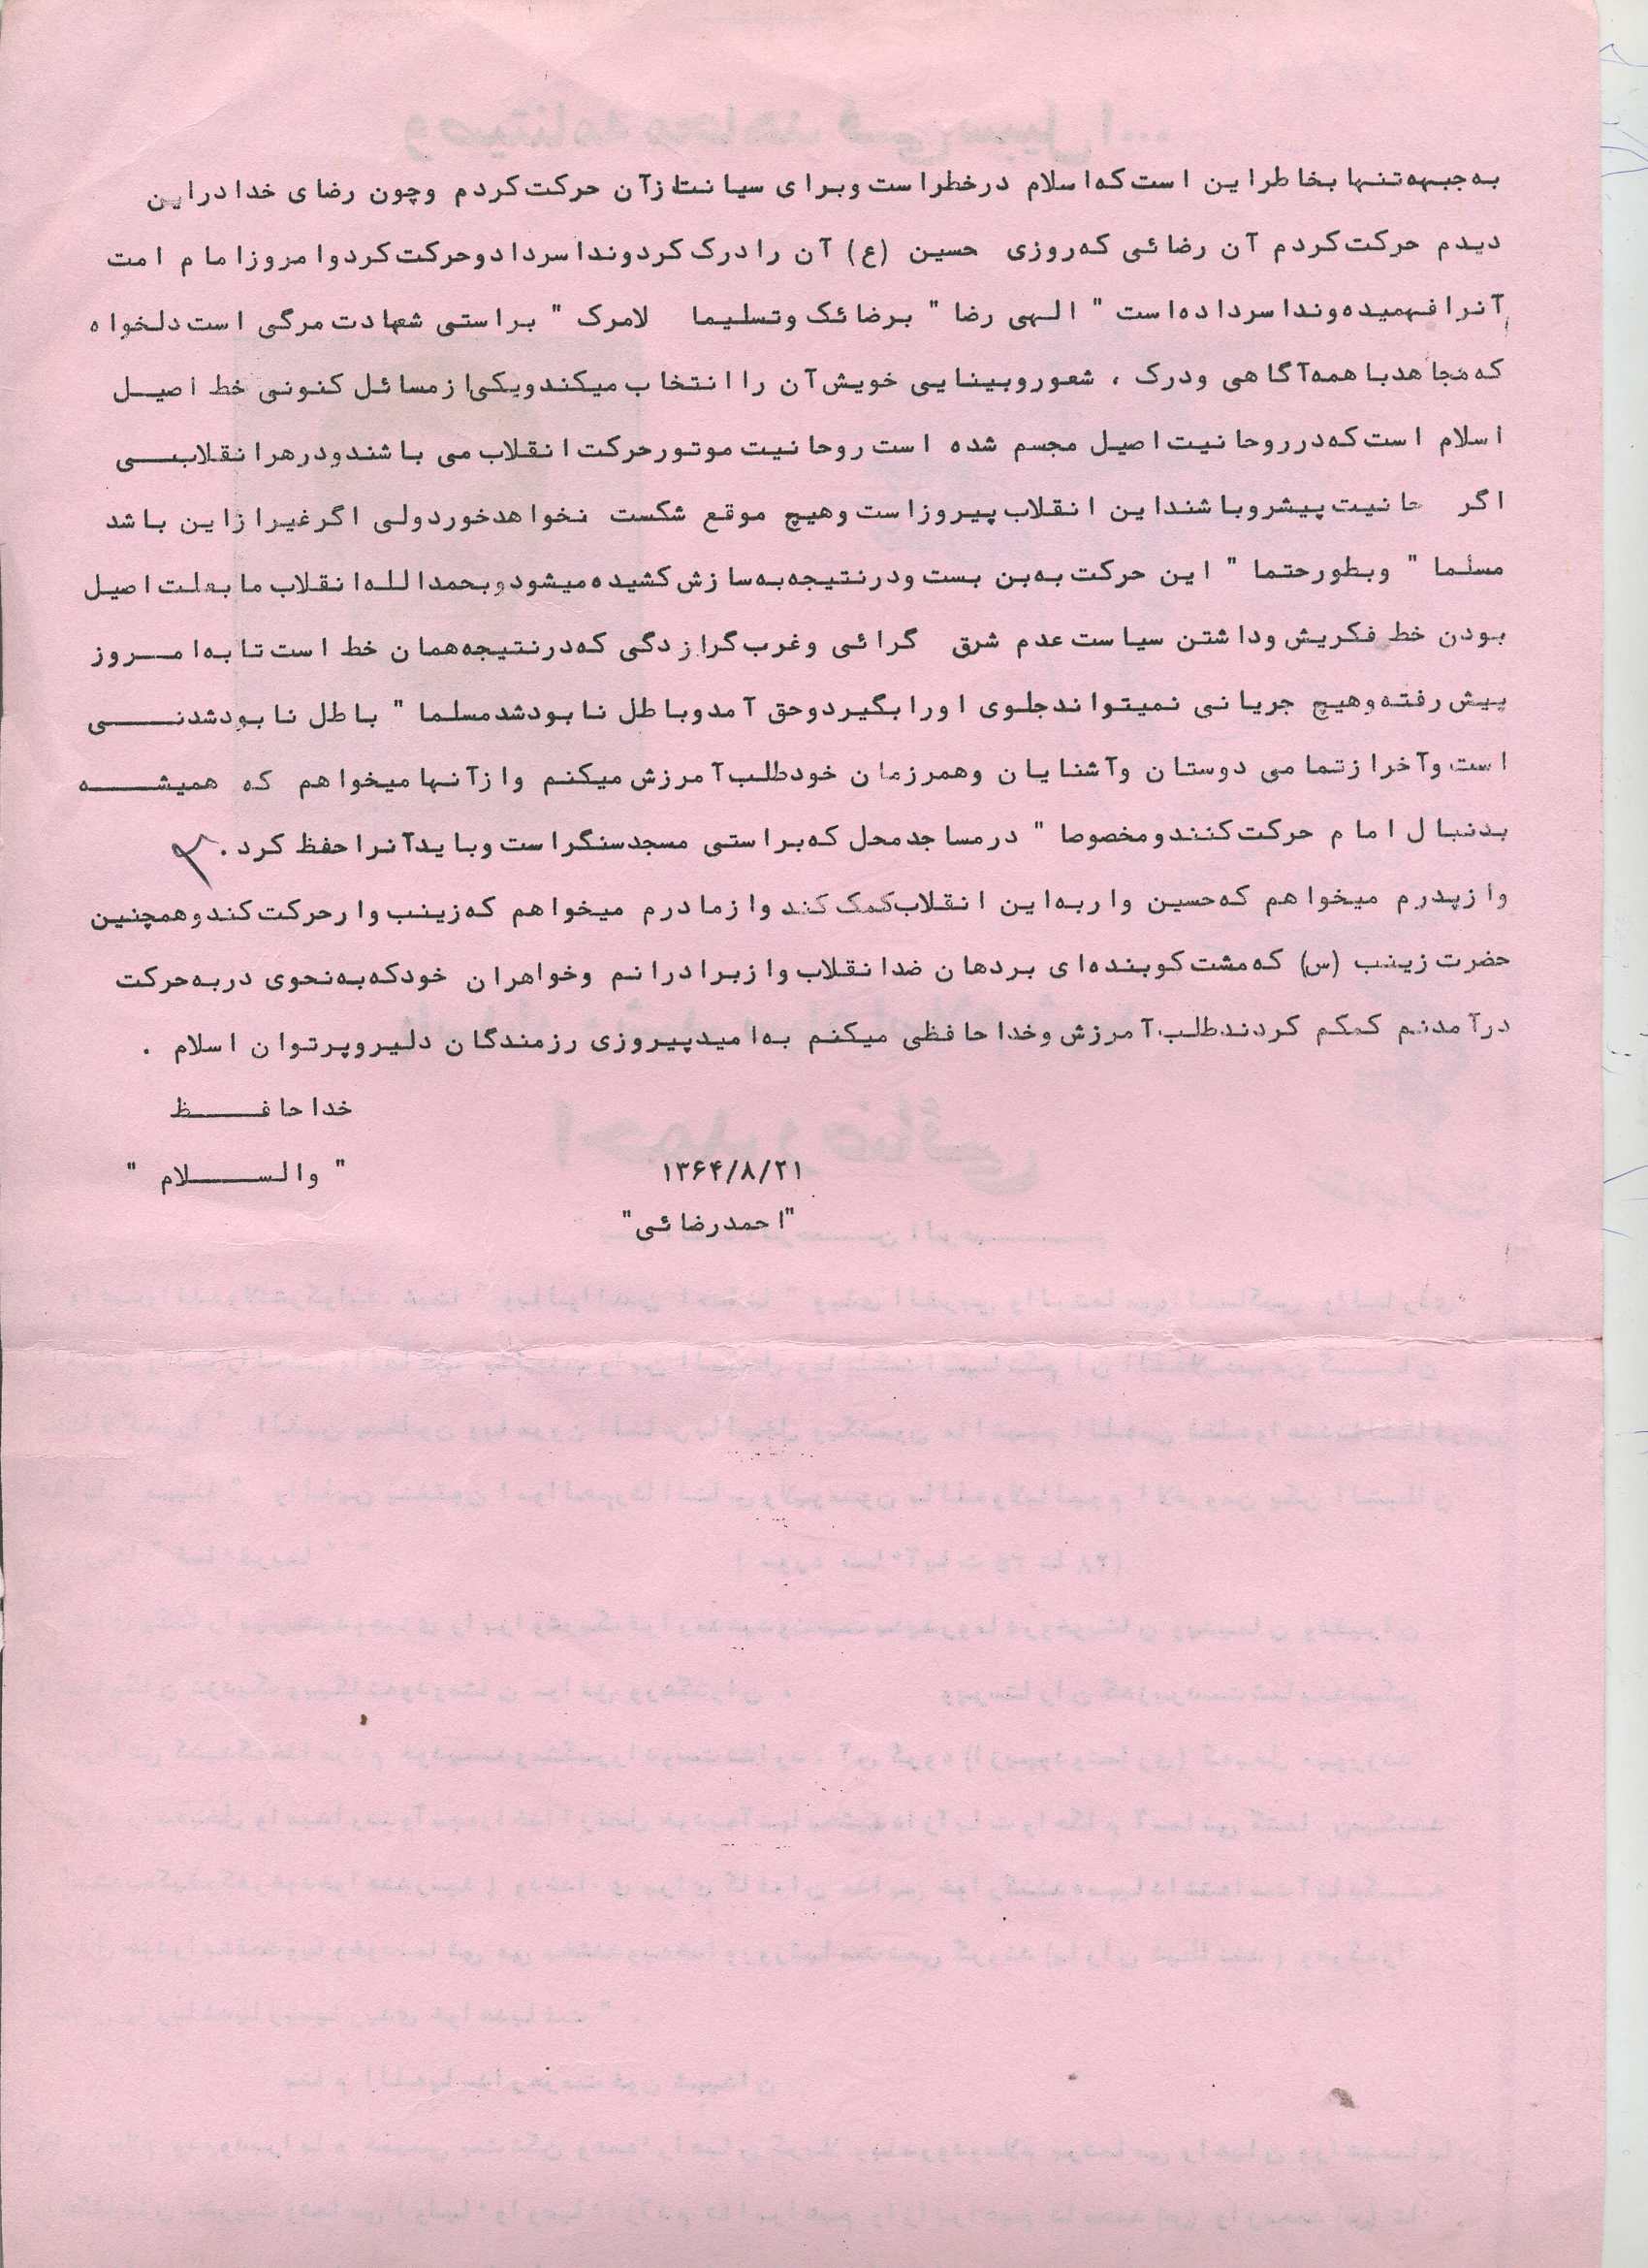 به جبهه تنها بخاطر این است که اسلام در خطر است و برای سیانت از آن حرکت کردم و چون رضای خدا در این
دیدم حرکت کردم آن رضائی که روزی حسین (ع) آن را درک کرد و ندا سر داد و حرکت کرد و امروز امام امت
آنرا فهمیده و ندا سر داده است " الهی رضا " برضائک و تسلیما لامرک " براستی شهادت مرگی است دلخواه
که مجاهد با همه آگاهی و درک ، شعور و بینایی خویش آن را انتخاب میکند و یکی از مسائل کنونی خط اصیل
اسلام است که در روحانیت اصیل مجسم شده است روحانیت موتور حرکت انقلاب می باشند و در هر انقلابی
اگر حانیت پیشرو باشند این انقلاب پیروز است و هیچ موقع شکست نخواهد خورد ولی اگر غیر از این باشد
مسلما " و بطور حتما " این حرکت به بن بست و در نتیجه به سازش کشیده میشود و بحمدالله انقلاب ما بعلت اصیل
بودن خط فکریش و داشتن سیاست عدم شرق گرائی و غرب گرازدگی که در نتیجه همان خط است تا به امروز
پیش رفته و هیچ جریانی نمیتواند جلوی او را بگیرد و حق آمد و باطل نابود شد مسلما " باطل نابود شدنی
است و آخر از تمامی دوستان و آشنایان و همرزمان خود طلب آمرزش میکنم و از آنها میخواهم که همیشه
بدنبال امام حرکت کنند و مخصوصا " در مساجد محل که براستی مسجد سنگر است و باید آنرا حفظ کرد .
و از پدرم میخواهم که حسین وار به این انقلاب کمک کند و از مادرم میخواهم که زینب وار حرکت کند و همچنین
حضرت زینب (س) که مشت کوبنده ای بر دهان ضد انقلاب و از برادرانم و خواهران خود که به نحوی در به حرکت
در آمدنم کمکم کردند طلب آمرزش و خداحافظی میکنم به امید پیروزی رزمندگان دلیر و پرتوان اسلام .
خداحافظ
" والسلام "
۱۳۶۴/۸/۲۱
"احمد رضائی"